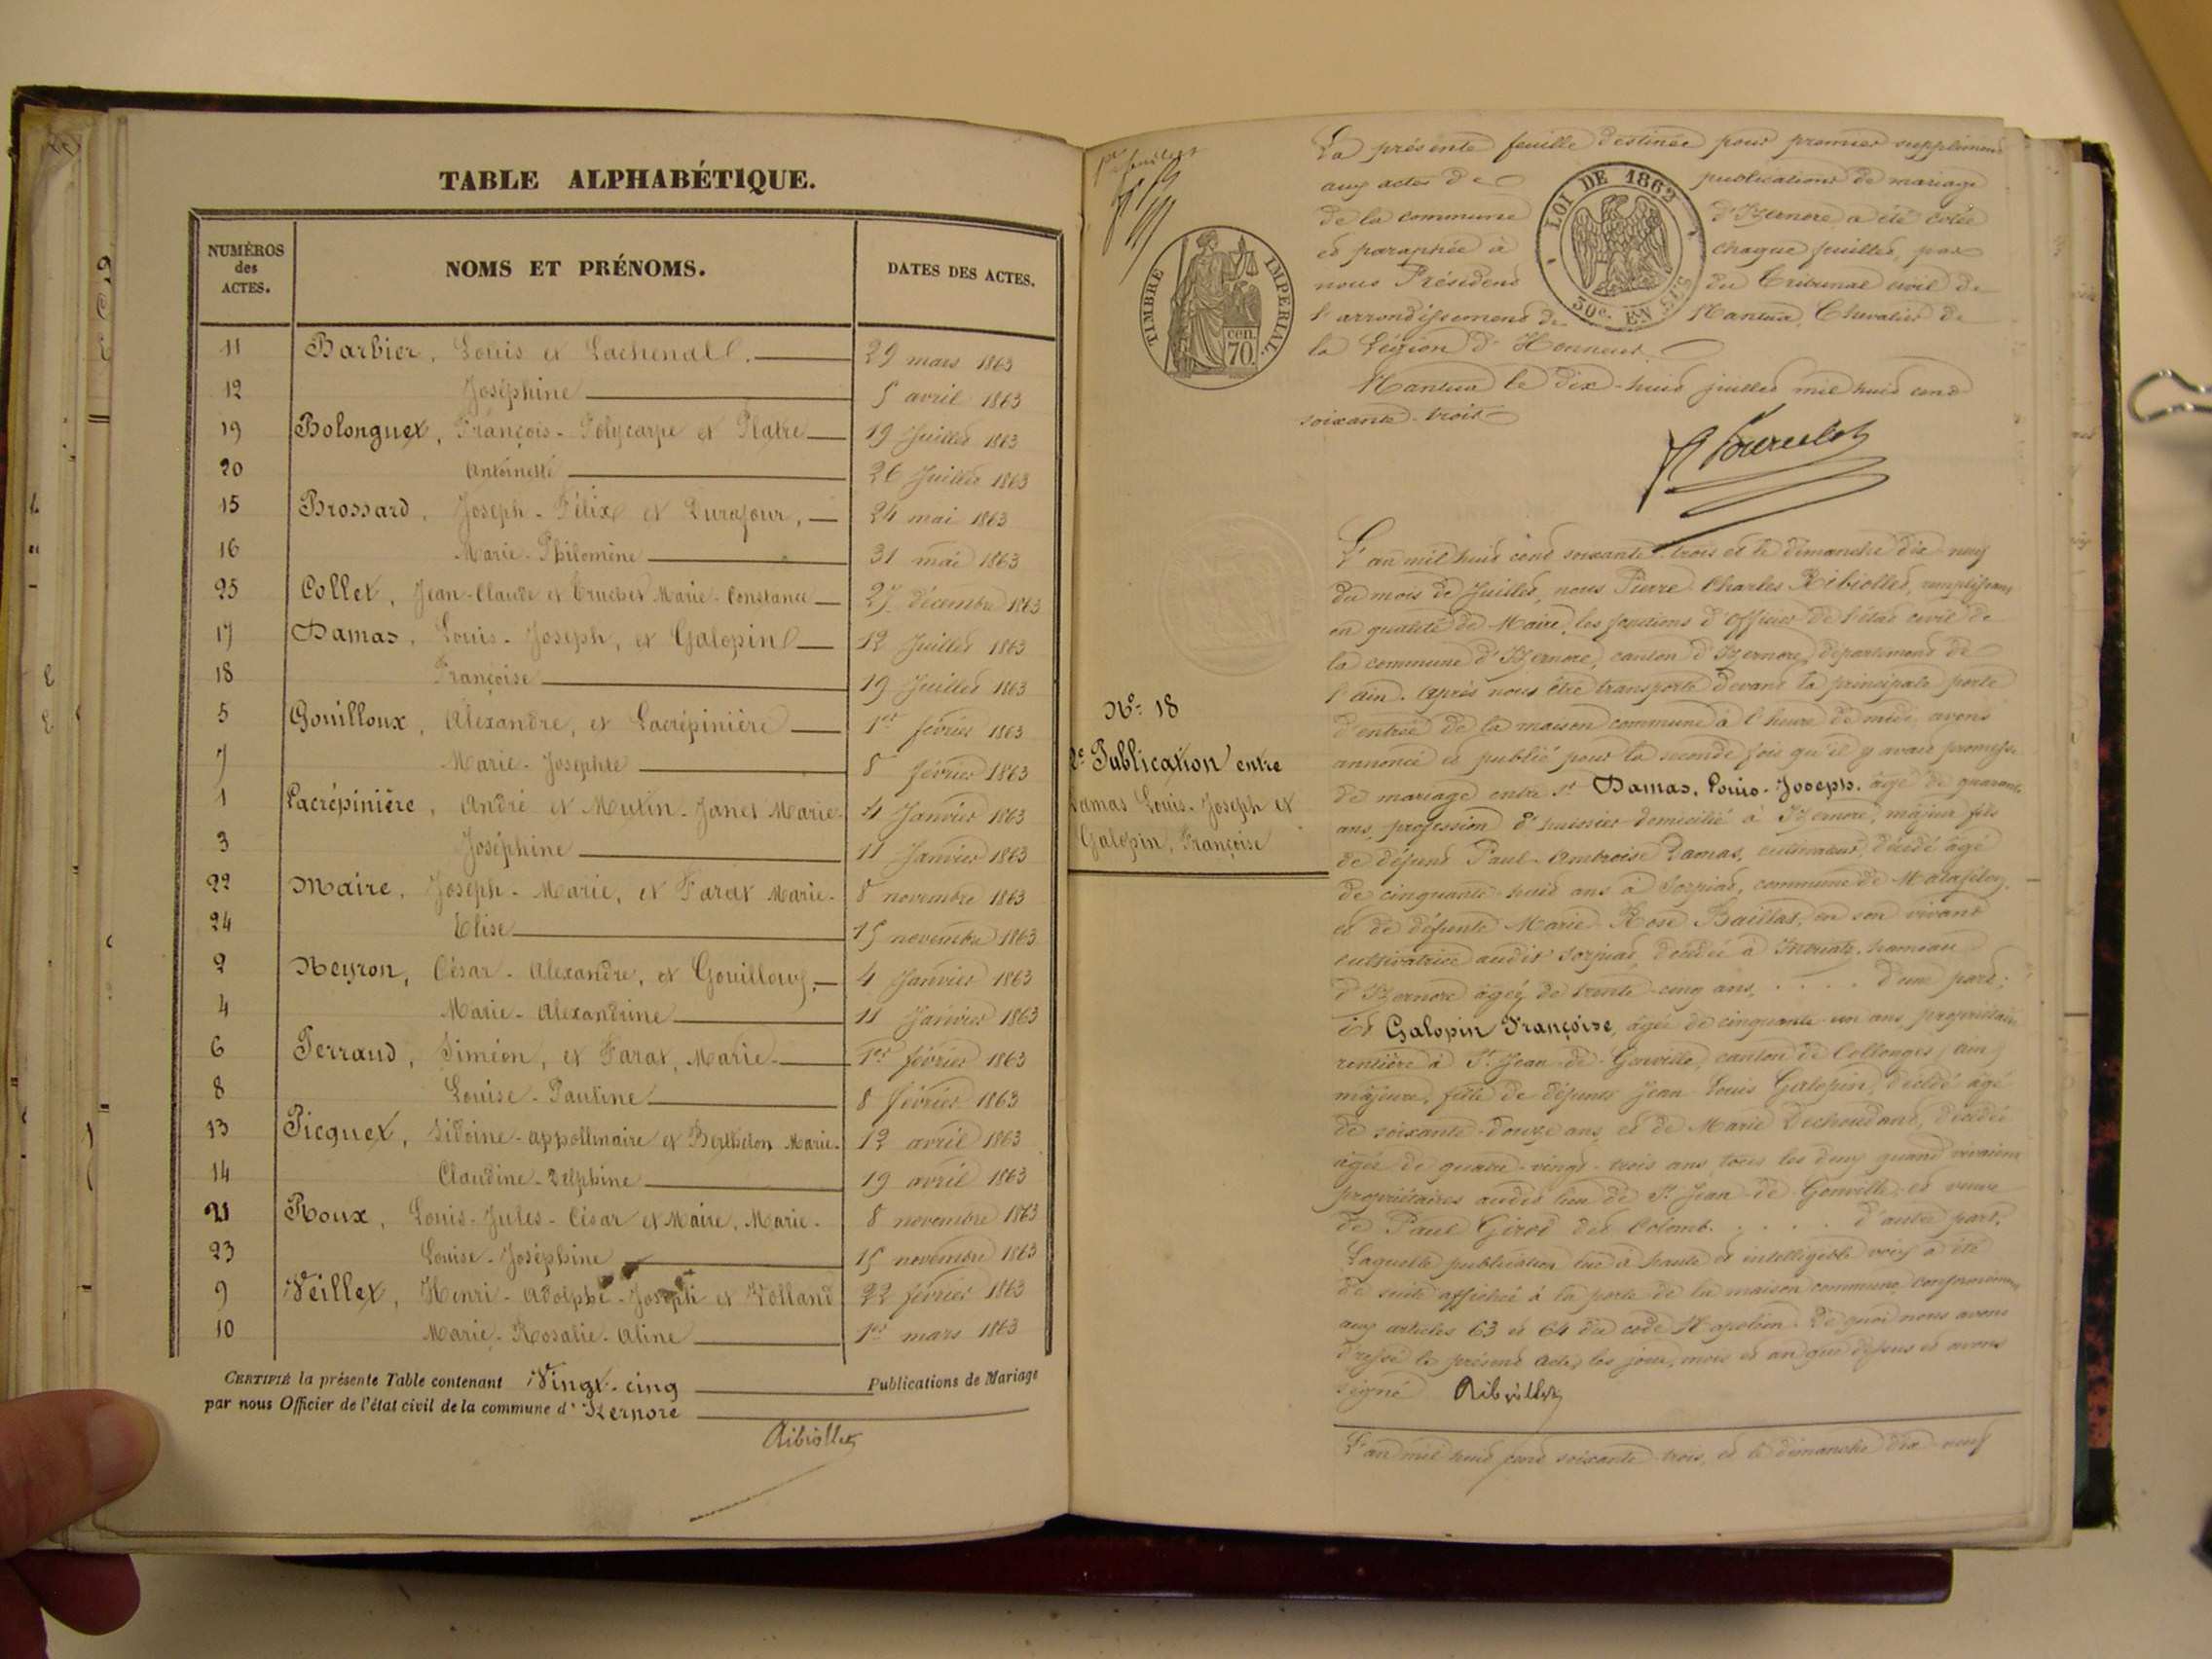 TABLE ALPHABÉTIQUE.
NUMÉROS des ACTES. NOMS ET PRÉNOMS. DATES DES ACTES.
11 Barbier, Louis et Lachenal. 29 mars 1863
12 Joséphine 5 avril 1863
19 Bolonguet, François-Polycarpe et Platre 19 Juillet 1863
20 Antoinette 26 Juillet 1863
15 Brossard, Joseph-Félix et Durafour, 24 mai 1863
16 Marie-Philomène 31 mai 1863
25 Collet, Jean-Claude et Truchet Marie-Constance 27 décembre 1863
17 Damas, Louis-Joseph, et Galopin 12 Juillet 1863
18 Françoise 19 Juillet 1863
5 Gouilloux, Alexandre, et Lacrépinière 1er février 1863
7 Marie-Josephte 8 février 1863
1 Lacrépinière, André et Mutin-Janet Marie- 4 Janvier 1863
3 Joséphine 11 Janvier 1863
22 Maire, Joseph-Marie, et Farat Marie- 8 novembre 1863
24 Elise 15 novembre 1863
2 Neyron, César-Alexandre, et Gouilloux, 4 Janvier 1863
4 Marie-Alexandrine 11 Janvier 1863
6 Perraud, Siméon, et Farat, Marie- 1er février 1863
8 Louise-Pauline 8 février 1863
13 Picquet, Sidoine-appollinaire et Berthelon Marie- 12 avril 1863
14 Claudine-Delphine 19 avril 1863
21 Roux, Louis-Jules-César et Maire, Marie- 8 novembre 1863
23 Louise-Joséphine 15 novembre 1863
9 Veillet, Henri-Adolphe-Joseph et Volland 22 février 1863
10 Marie-Rosalie-Aline 1er mars 1863
CERTIFIÉ la présente Table contenant Vingt-cinq Publications de Mariage
par nous Officier de l'état civil de la commune d'Izernore
Ribiollet
La présente feuille destinée pour premier supplément
aux actes de publications de mariage
de la commune d'Izernore a été cotée
et paraphée à chaque feuillet, par
nous Président du Tribunal civil de
l'arrondissement de Nantua, Chevalier de
la Légion d'Honneur.
Nantua le dix-huit juillet mil huit cent
soixante-trois
LOI DE 1862
30c. EN SUS
TIMBRE IMPERIAL.
cen. 70.
N° 18
2e Publication entre
Damas Louis-Joseph et
Galopin, Françoise
L'an mil huit cent soixante-trois et le dimanche dix-neuf
du mois de Juillet, nous Pierre Charles Ribiollet, remplissant
en qualité de Maire, les fonctions d'Officier de l'état civil de
la commune d'Izernore, canton d'Izernore, département de
l'ain. Après nous être transporté devant la principale porte
d'entrée de la maison commune à l'heure de midi, avons
annoncé et publié pour la seconde fois qu'il y avait promesse
de mariage entre Sr Damas, Louis-Joseph, âgé de quarante
ans, profession d'huissier domicilié à Izernore, majeur fils
de défunt Paul-Ambroise Damas, cultivateur, décédé âgé
de cinquante-huit ans à commune de Matafelon,
et de défunte Marie Rose Baillat, en son vivant
cultivatrice audit décédée à hameau
d'Izernore âgée de trente-cinq ans, . . . . d'une part;
Et Galopin Françoise, âgée de cinquante-un ans, propriétaire
rentière à St. Jean-de-Gonville, canton de Collonges (ain)
majeure, fille de défunts Jean-Louis Galopin, décédé âgé
de soixante-douze ans et de Marie décédée
âgée de quatre-vingt-trois ans tous les deux quand vivaient
propriétaires audit lieu de St. Jean-de-Gonville, et veuve
de Paul Girod dit Colomb. . . . . d'autre part.
Laquelle publication lue à haute et intelligible voix a été
de suite affichée à la porte de la maison commune, conformément
aux articles 63 et 64 du code Napoléon. De quoi nous avons
dressé le présent acte, les jour, mois et an que dessus et avons
signé Ribiollet
L'an mil huit cent soixante-trois, et le dimanche dix-neuf